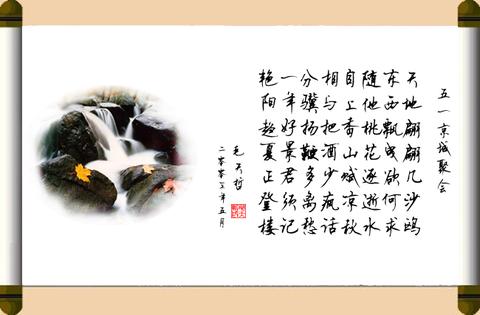 五一京城聚会
天地翩翩几沙鸥
东西飘曳欲何求
随他桃花逐逝水
自上香山赋凉秋
相与把酒少疯话
分骥扬鞭多离愁
一年好景君须记
艳阳趁夏正登楼
毛天哲
二零零七年五月